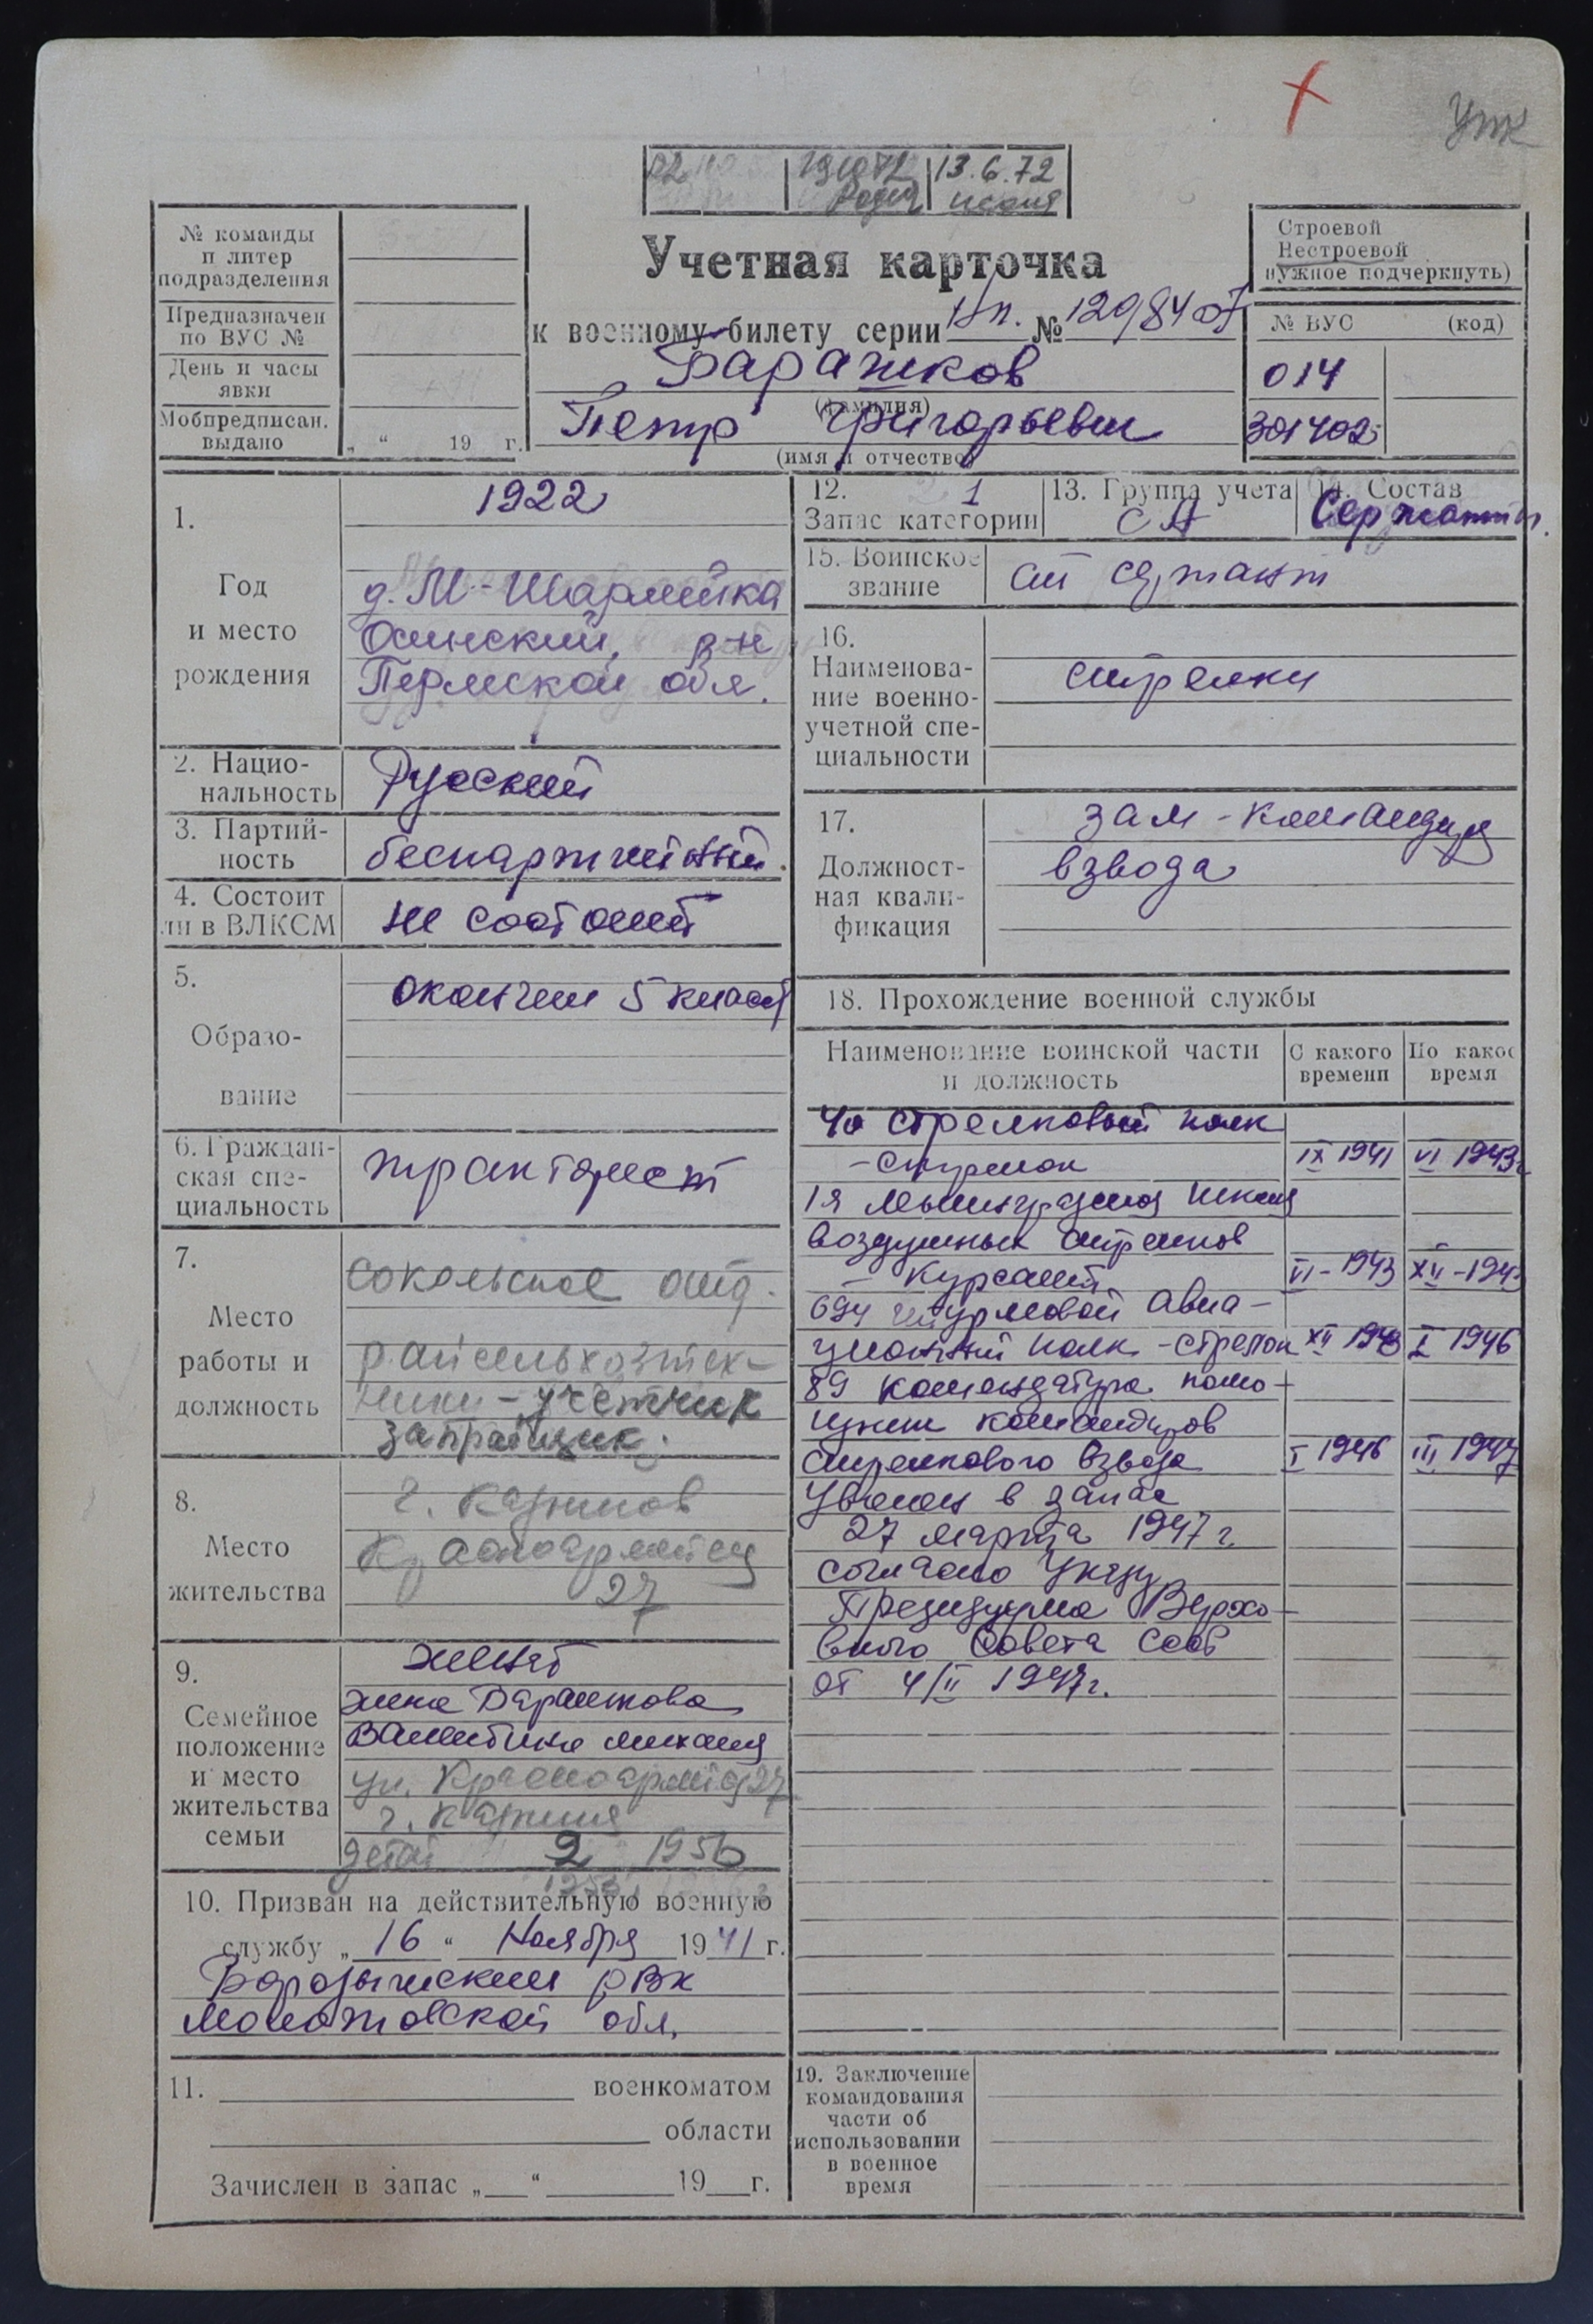 Упк
13.6.72
№ команды
и литер
подразделения
Предназначен
по ВУС №
День и часы
явки
Мобпредписан.
выдано
„ “ 19 г.
Учетная карточка
к военному билету серии Нп. №
(фамилия)
Петр Григорьевич
(имя и отчество)
Строевой
Нестроевой
нужное подчеркнуть)
№ ВУС (код)
014
301402
1.
Год
и место
рождения
1922
Осинский р-н
Пермской обл.
2. Нацио-
нальность
Русский
3. Партий-
ность
беспартийный.
4. Состоит
ли в ВЛКСМ
не состоит
5.
Образо-
вание
окончил 5 класс
6. Граждан-
ская спе-
циальность
тракторист
7.
Место
работы и
должность
Сокольское отд.
райсельхозтех-
ники - учетчик
заправщик.
8.
Место
жительства
г.
27
9.
Семейное
положение
и место
жительства
семьи
женат
жена
Валентина
ул. 27
г.
детей 2 1956
10. Призван на действительную военную
службу „ 16 “ Ноября 1941 г.
РВК
Молотовской обл.
11. военкоматом
области
Зачислен в запас „ “ 19 г.
12. 1
Запас категории
13. Группа учета
СА
14. Состав
Сержанты.
15. Воинское
звание
ст сержант
16.
Наименова-
ние военно-
учетной спе-
циальности
стрелки
17.
Должност-
ная квали-
фикация
зам-командира
взвода
18. Прохождение военной службы
Наименование воинской части
и должность
С какого
времени
По какое
время
стрелковый полк
- стрелок IX 1941 VI 1943г
1я школа
воздушных стрелков
- курсант VI - 1943 XII - 1943
694 штурмовой авиа-
ционный полк - стрелок XII 1943 I 1946
89 комендатура помо-
щник командиров
стрелкового взвода I 1946 III 1947
Уволен в запас
27 марта 1947 г.
согласно Указу
Президиума Верхо-
вного Совета СССР
от 4/II 1947г.
19. Заключение
командования
части об
использовании
в военное
время